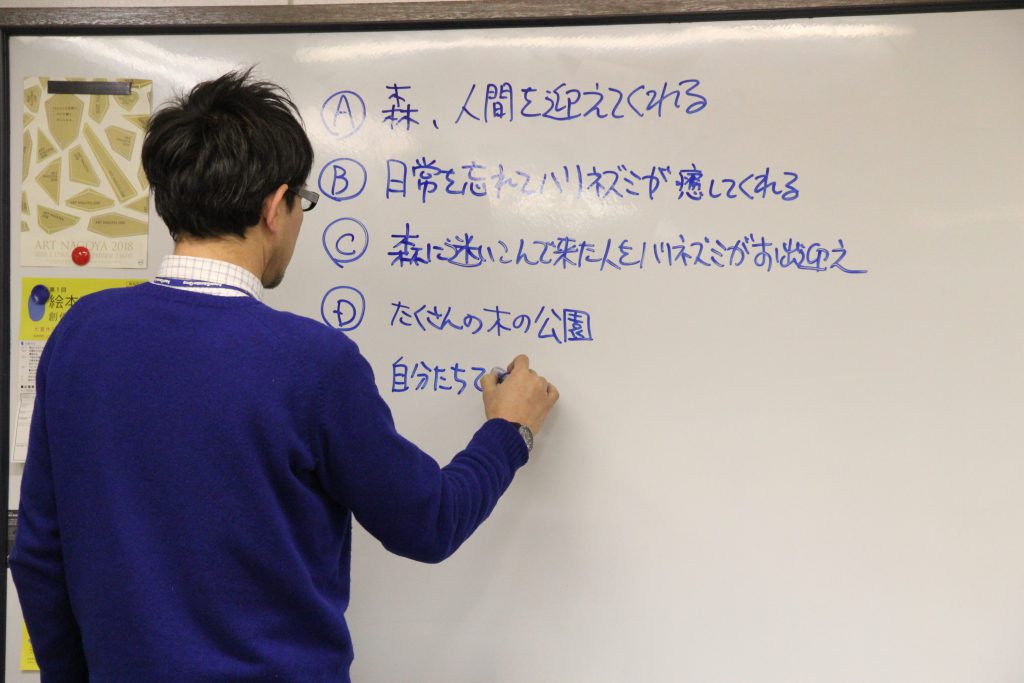 Ⓐ 森、人間を迎えてくれる
Ⓑ 日常を忘れてハリネズミが癒してくれる
Ⓒ 森に迷いこんで来た人をハリネズミがお出迎え
Ⓓ たくさんの木の公園
自分たちで
ART NAGOYA 2018
第1回
絵本
創作